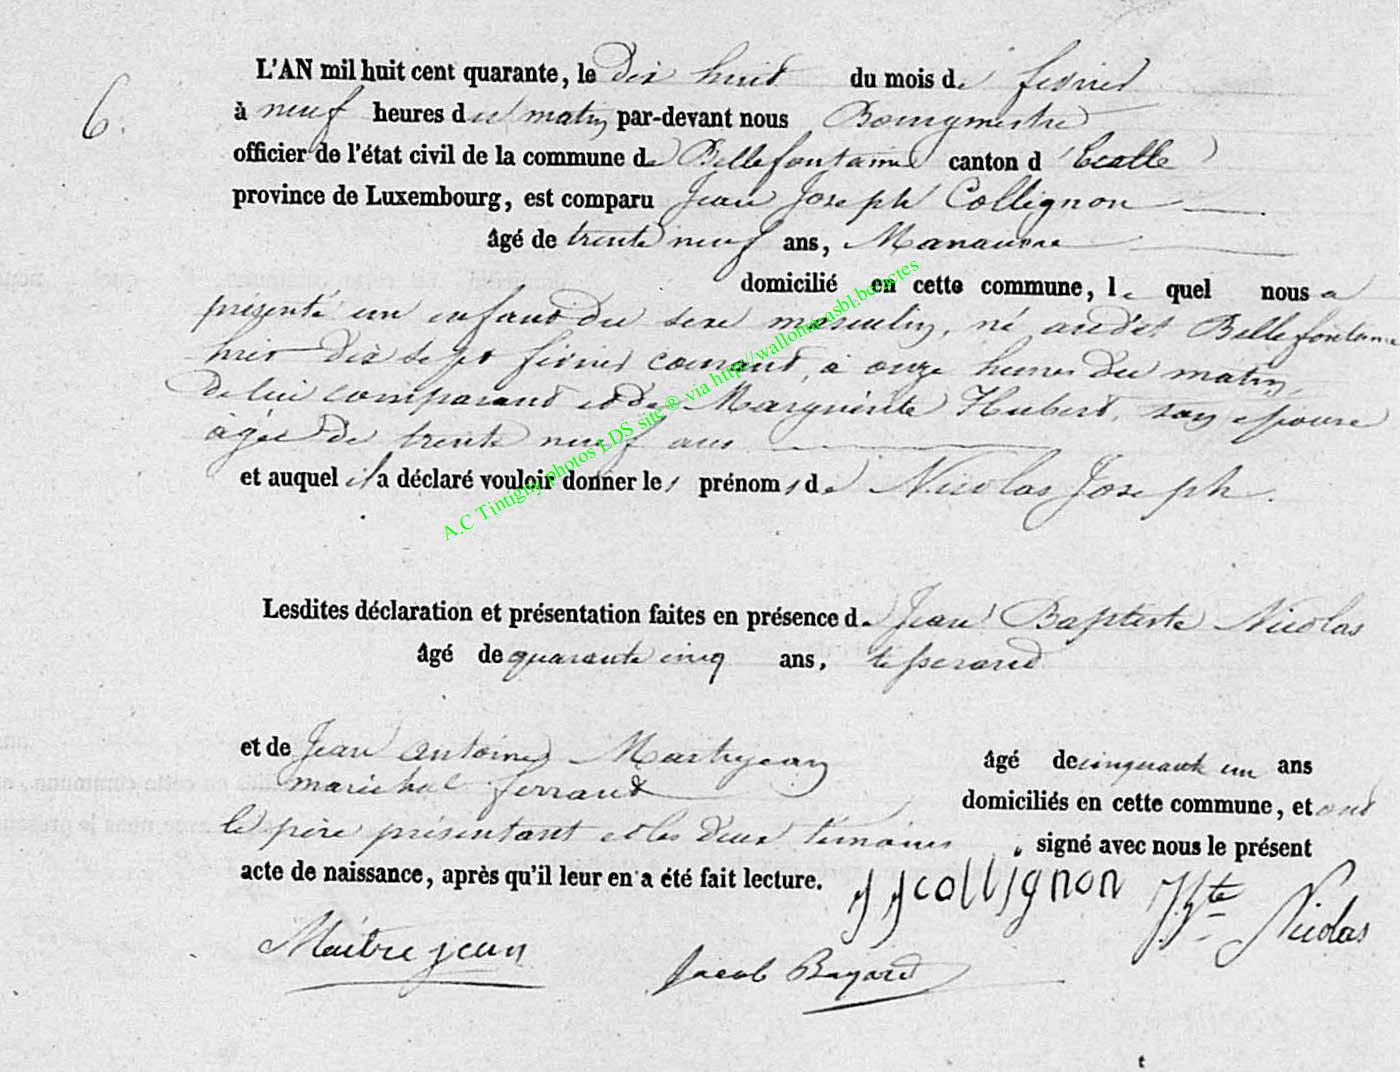 6.
L'AN mil huit cent quarante, le dix huit du mois de fevrier
à neuf heures du matin par-devant nous Bourgmestre
officier de l'état civil de la commune de Bellefontaine canton d'Etalle
province de Luxembourg, est comparu Jean Joseph Collignon
âgé de trente neuf ans, Manœuvre
domicilié en cette commune, le quel nous a
présenté un enfant du sexe masculin, né audit Bellefontaine
hier dix sept fevrier courant, à onze heures du matin,
de lui comparant et de Marguerite Hubert, son epouse
âgée de trente neuf ans
et auquel il a déclaré vouloir donner les prénoms de Nicolas Joseph.
Lesdites déclaration et présentation faites en présence de Jean Baptiste Nicolas
âgé de quarante cinq ans, tisserand
et de Jean antoine Maitrejean âgé de cinquante un ans
maréchal ferrant domiciliés en cette commune, et ont
le père présentant et les deux témoins signé avec nous le présent
acte de naissance, après qu'il leur en a été fait lecture.
JJ collignon JBte Nicolas
Maitrejean Jacob Bayard
A.C Tintigny photos LDS site ® via http//wallonia-asbl.be/actes